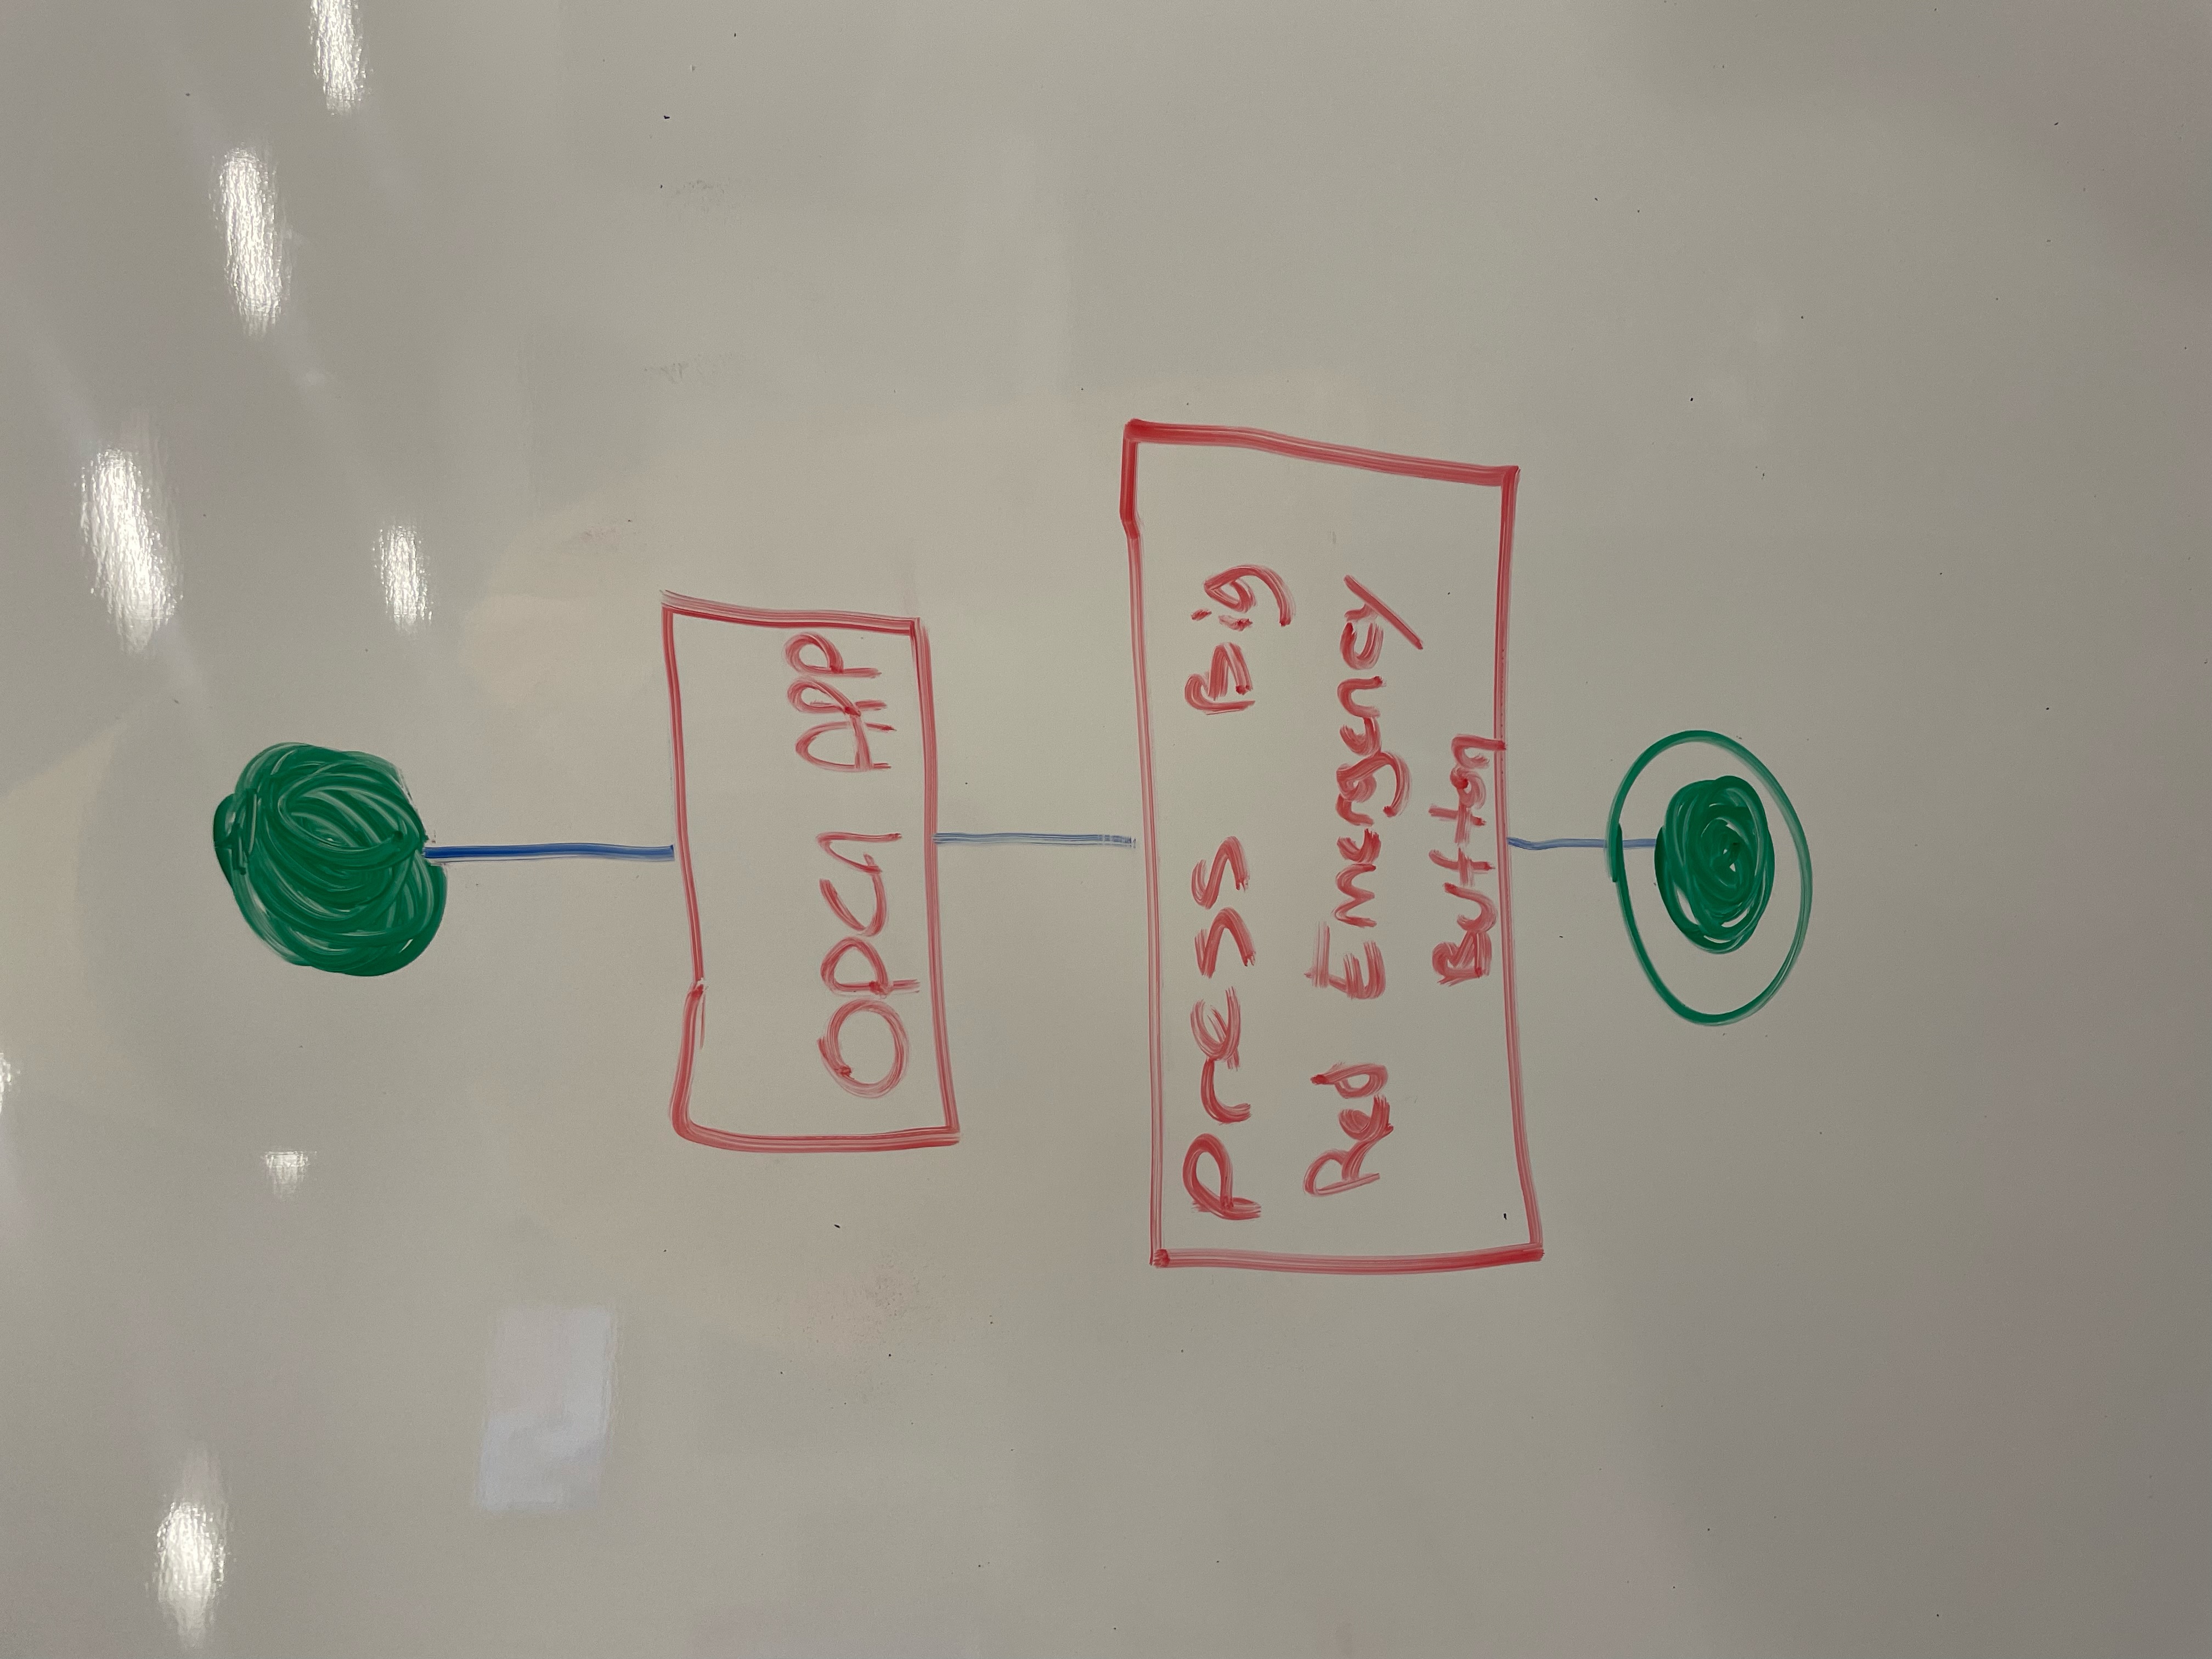 Open APP
Press Big
Red Emergency
Button